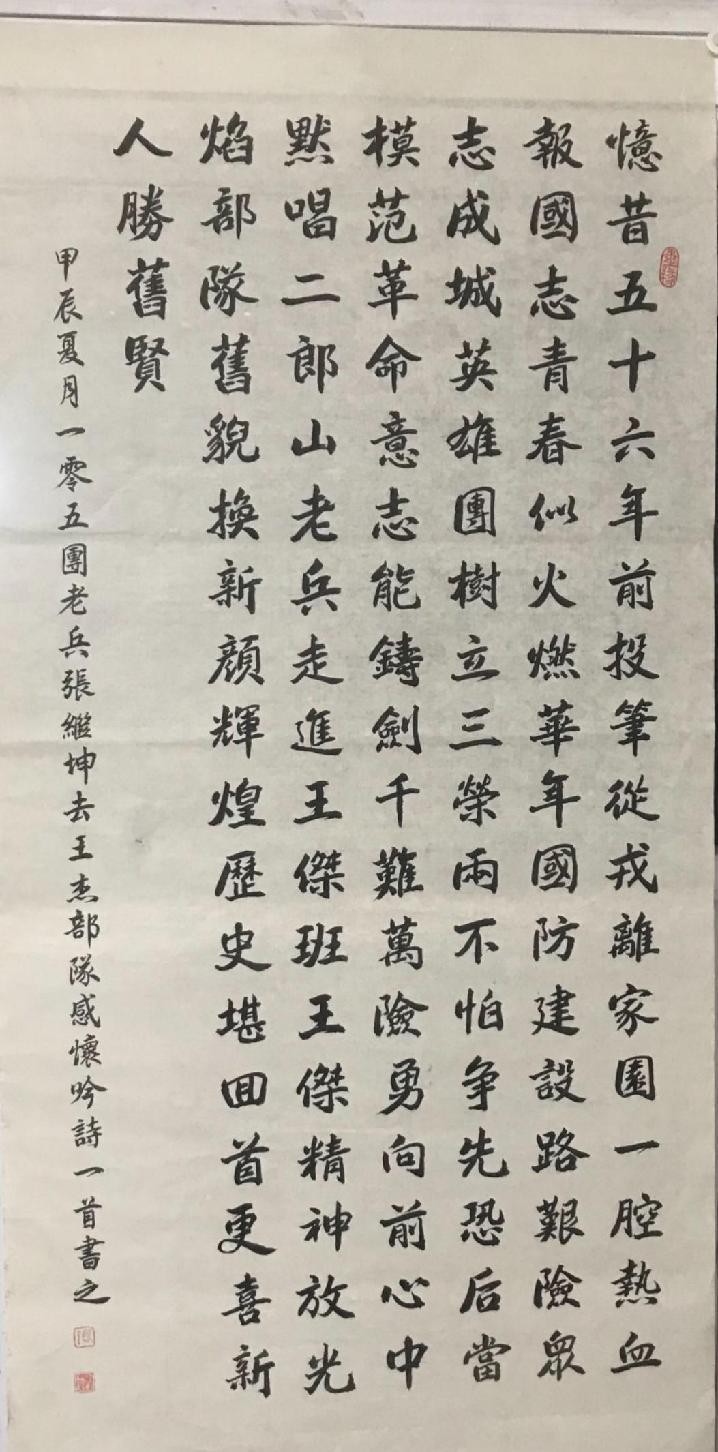 憶昔五十六年前投筆從戎離家園一腔熱血
報國志青春似火燃華年國防建設路艱險衆
志成城英雄團樹立三榮兩不怕争先恐后當
模范革命意志能鑄劍千難萬險勇向前心中
默唱二郎山老兵走進王傑班王傑精神放光
焰部隊舊貌換新顔輝煌歷史堪回首更喜新
人勝舊賢
甲辰夏月一零五團老兵張繼坤去王杰部隊感懷吟詩一首書之